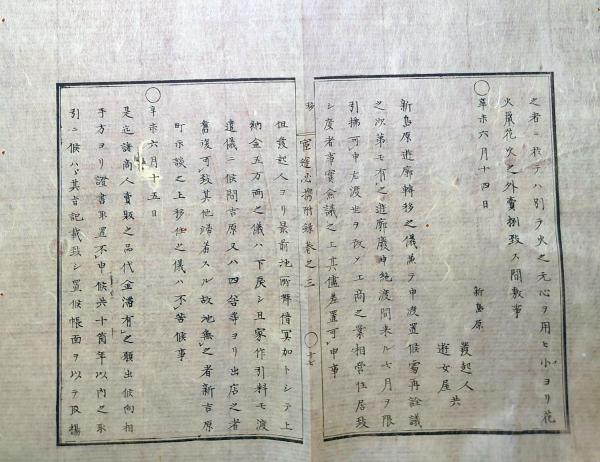 之者ニ於テハ別ヲ火之元心ヲ用ヒ小ヨリ花
火線花火之外賣捌致ス間敷事
〇辛未六月十四日
新島原
發起人
遊女屋共
新島原遊廓轉移之儀兼テ申渡置候處再詮議
之次第モ有之遊廓廢シ申純渡間来ル七月ヲ限
引拂可申右渡世ヲ改メ工商之業相營住居致
シ度者事實会議之上其儘差置可申事
但發起人ヨリ最前池所拜借冥加トシテ上
納金五万両之儀ハ下戾シ且家作引料モ渡
遣儀ニ候間吉原又ハ四宿等ヨリ出店之者
舊復可致其他活若スル故地無之者新吉原
町示談之上移住之儀ハ不苦候事
〇辛未六月十五日
是迄諸商人賣販之品代金滯有之願出候向相
手方ヨリ證書取置不申候共十箇年以内之取
引ニ候ハヽ其旨記載致シ置候帳面ヲ以テ取揚
官途必携附録卷之三
〇十七